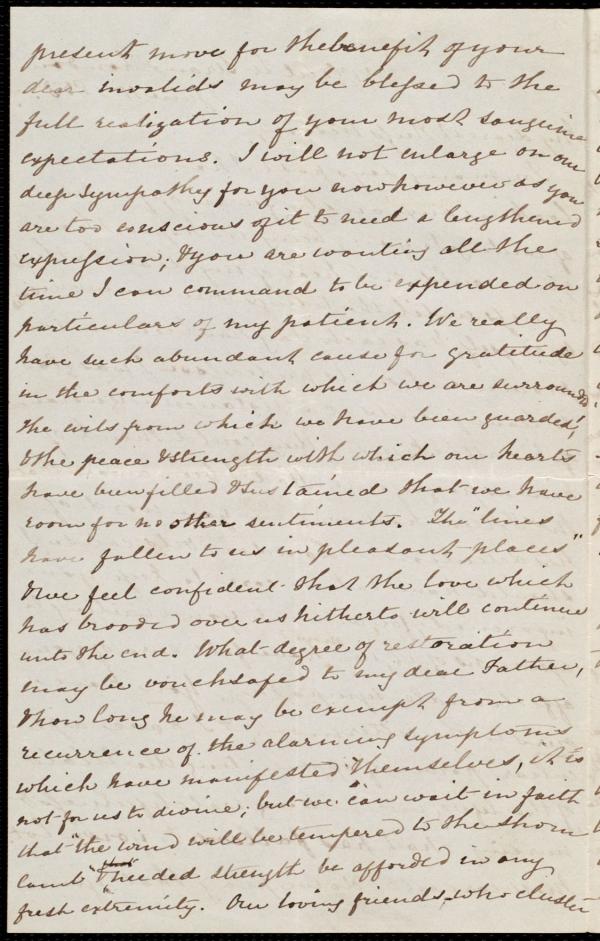 present move for the benefit of your
dear invalids may be blessed to the
full realization of your most sanguine
expectations. I will not enlarge on our
deep sympathy for you now however as you
are too conscious of it to need a lengthened
expression; & you are wanting all the
time I can command to be expended on
particulars of my patient. We really
have such abundant cause for gratitude
in the comforts with which we are surrounded,
the evils from which we have been guarded,
& the peace & strength with which our hearts
have been filled & sustained that we have
room for no other sentiments. The "lines
have fallen to us in pleasant places"
& we feel confident that the love which
has brooded over us hitherto will continue
unto the end. What degree of restoration
may be vouchsafed to my dear Father,
& how long he may be exempt from a
recurrence of the alarming symptoms
which have manifested themselves, it is
not for us to divine; but we can wait in faith
that "the wind will be tempered to the shorn
lamb" & needed strength be afforded in any
fresh extremity. Our loving friends who cluster